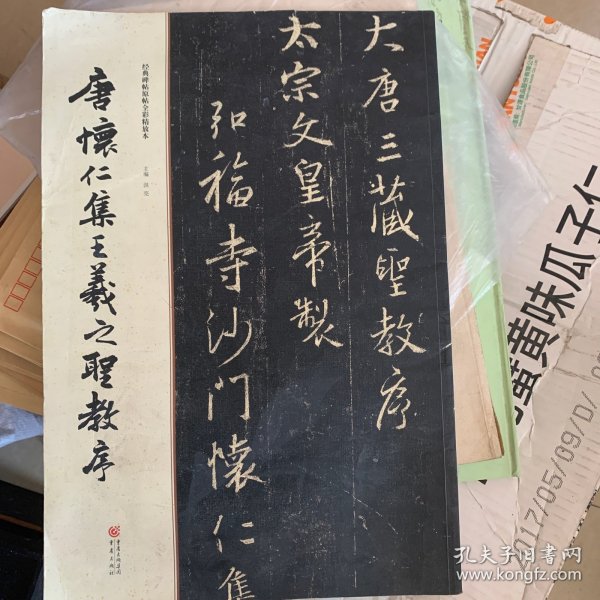 大唐三藏聖教序
太宗文皇帝製
弘福寺沙門懷仁集
经典碑帖原帖全彩精放本
主编 洪亮
唐懷仁集王羲之聖教序
重庆出版集团
重庆出版社
黄味瓜子仁
2017/05/09/D/
孔夫子旧书网
www.kongfz.com